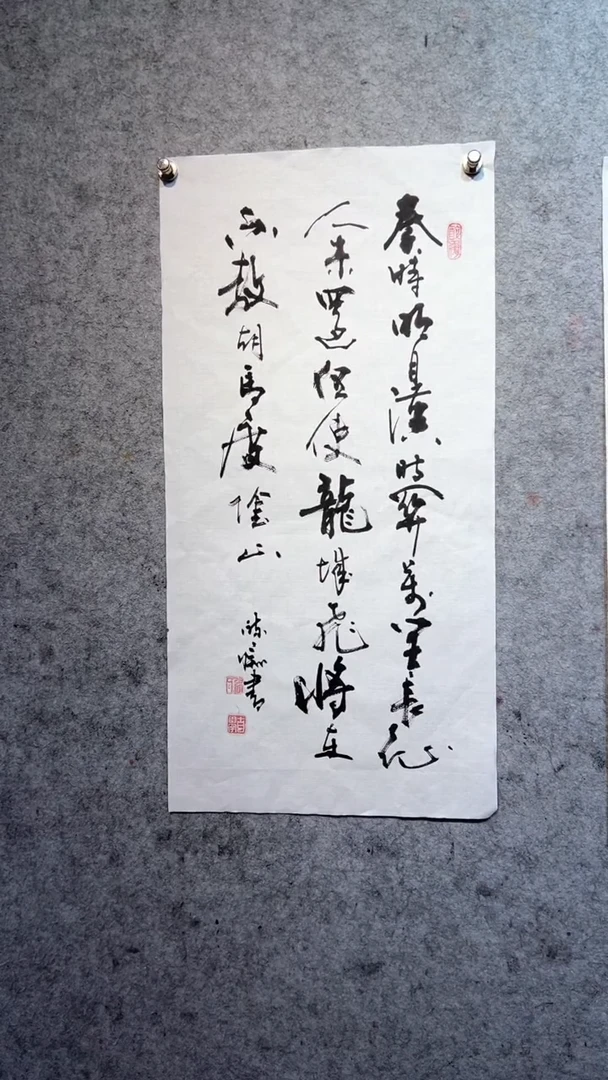 秦時明月漢時關萬里長征
人未還但使龍城飛將在
不教胡馬度陰山
書